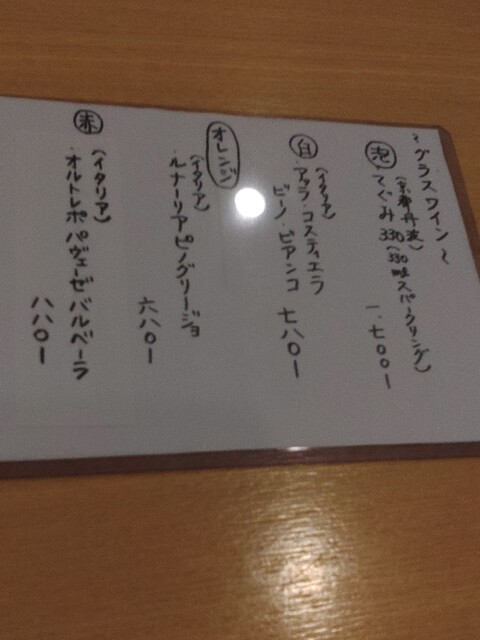 〜グラスワイン〜
泡
(京都丹波)
てぐみ330(330mlスパークリング)
一、七〇〇ー
白
(イタリア)
・アッラ・コスティエラ
ビーノ・ビアンコ 七八〇ー
オレンジ
(イタリア)
・ルナーリアピノグリージョ
六八〇ー
赤
(イタリア)
・オルトレポパヴェーゼバルベーラ
八八〇ー